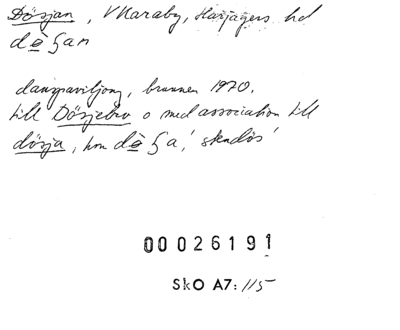 Dösjan, V Karaby, Harjagers hd
dèʃan
danspaviljong, brunnen 1970.
till Dösjebro o med association till
dösja, hon dèʃa, 'skendös'
00026191
SkO A7: 115